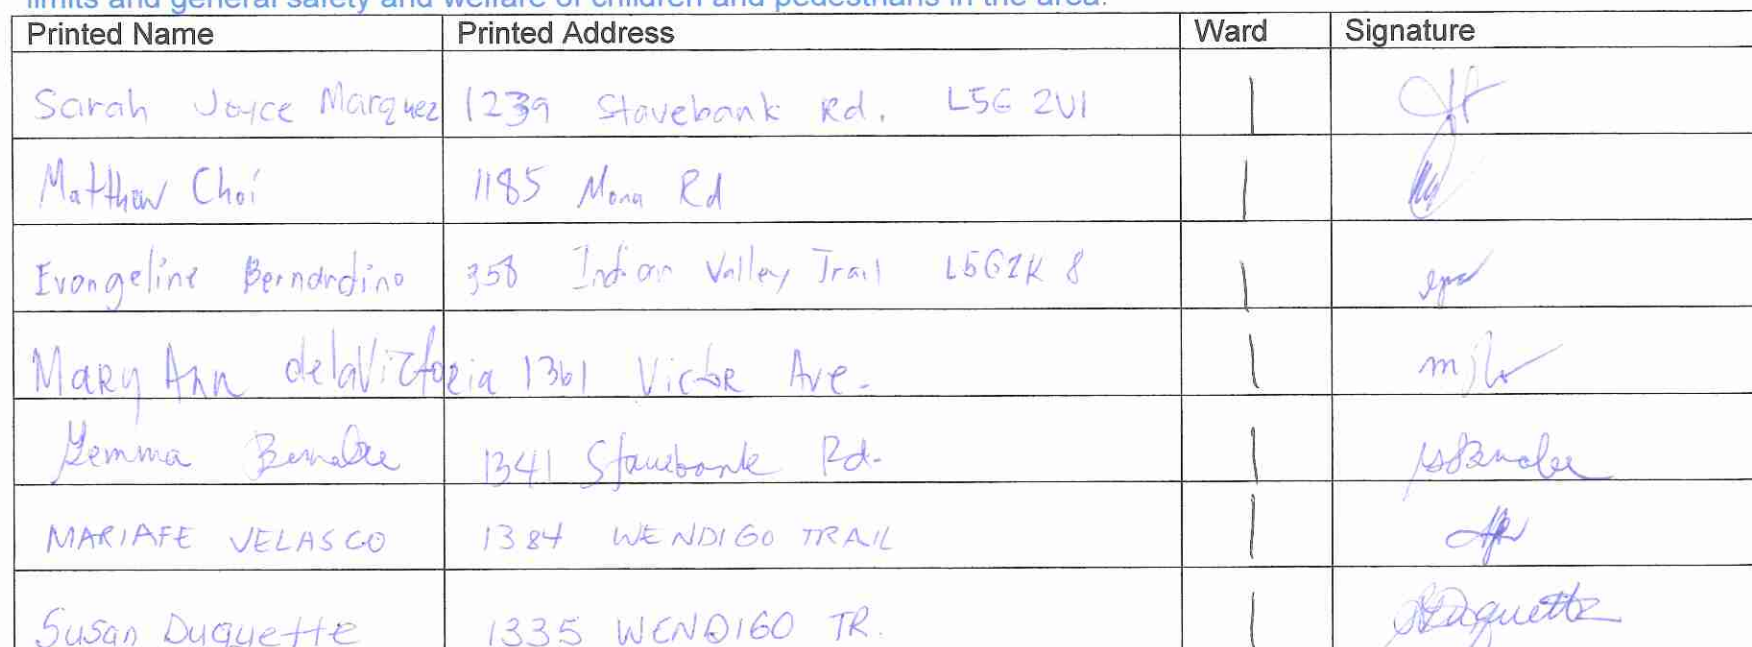 limits and general safety and welfare of children and pedestrians in the area.
Printed Name Printed Address Ward Signature
Sarah Joyce Marquez 1239 Stavebank Rd. L5G 2V1 1
Matthew Choi 1185 Mona Rd 1
Evangeline Bernardino 358 Indian Valley Trail L5G2K8 1
Mary Ann delaVictoria 1361 Victor Ave. 1
Gemma Bernabe 1341 Stavebank Rd. 1
MARIAFE VELASCO 1384 WENDIGO TRAIL 1
Susan Duquette 1335 WENDIGO TR. 1 Duquette